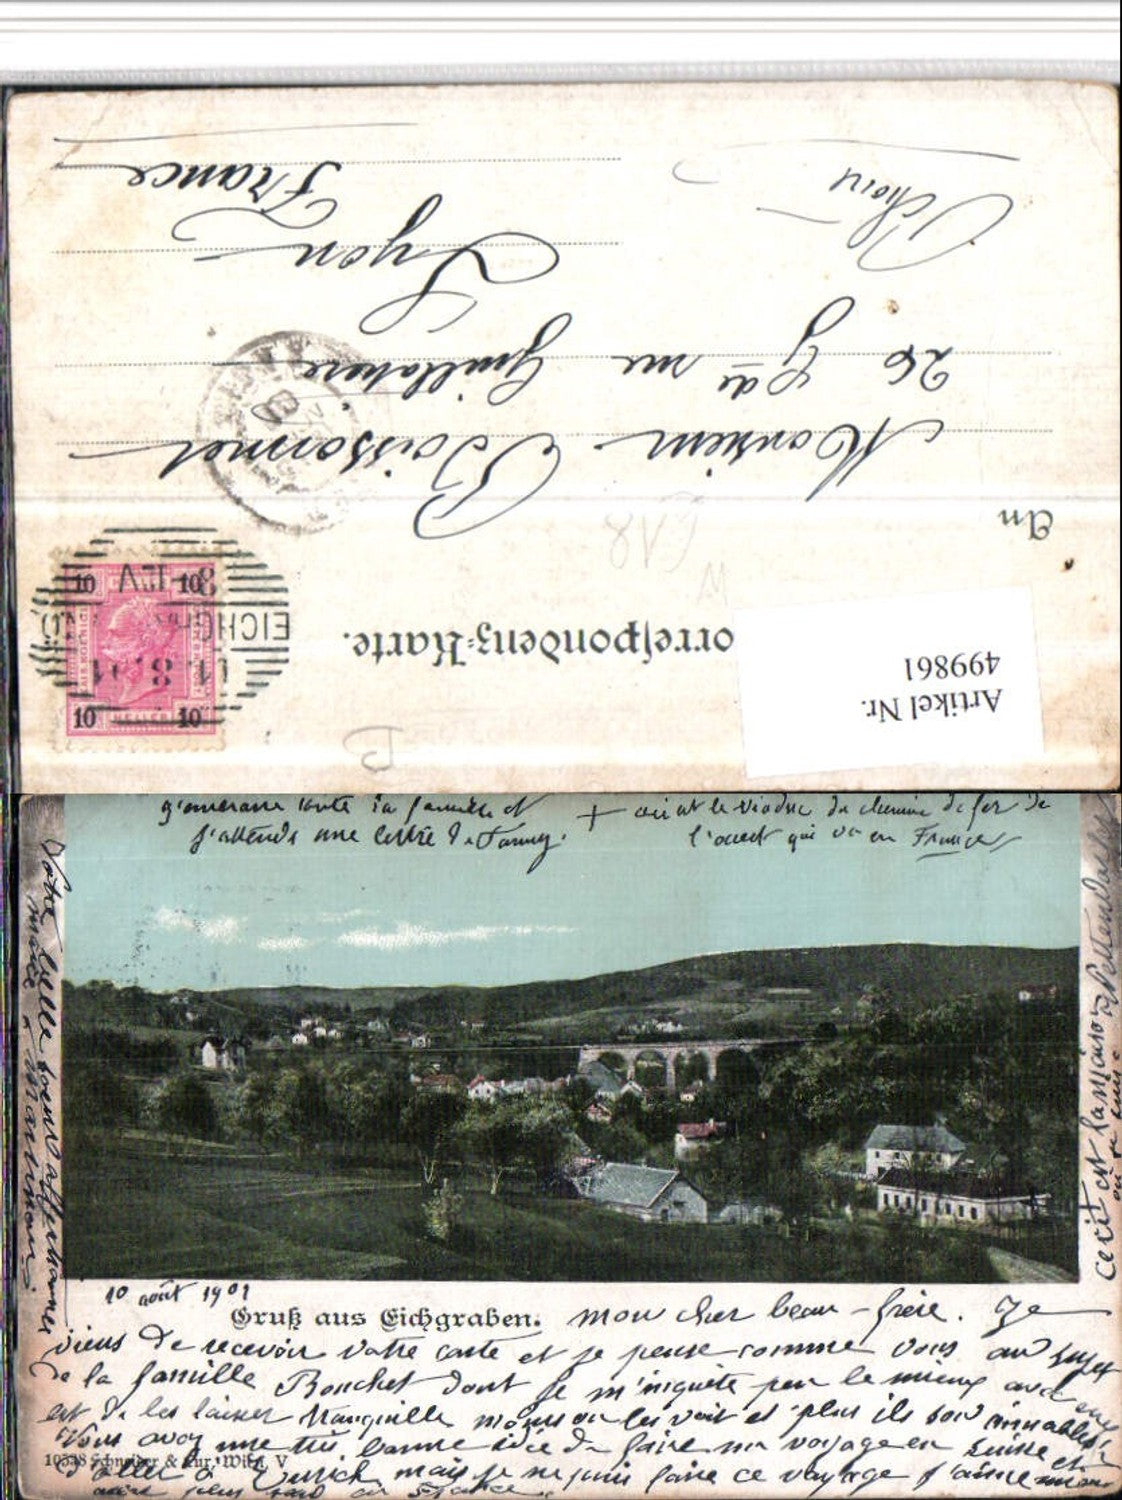 Artikel Nr.
499861
orrespondenz-Karte.
An
Monsieur Boissonnet
26 Gde rue Guillotière
Lyon
France
10 10
10 HELLER 10
EICHGRABEN
11. 8. 01
8-12V
618
+ ceci est le viaduc du chemin de fer de
l'ouest qui va en France
toute la famille et
j'attends une lettre de Fanny.
Votre belle soeur affectionnée
ceci est la maison
10 août 1901
Gruß aus Eichgraben.
mon cher beau-frère. Je
viens de recevoir votre carte et je pense comme vous au sujet
de la famille Bouchet dont je m'inquiète peu le mieux avec eux
est de les laisser tranquille moins on les voit et plus ils sont aimables.
Vous avez une très bonne idée de faire un voyage en Suisse et
10538 Schneider & Lux, Wien, V
d'aller à Zurich mais je ne puis faire ce voyage j'aime mieux
aller plus tard en France.